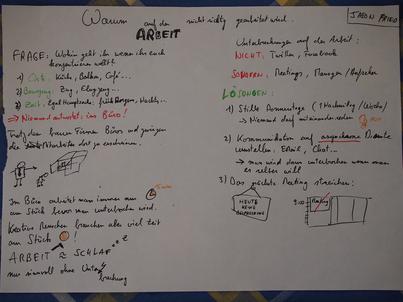 Warum auf der ARBEIT nicht richtig gearbeitet wird.
JASON FRIED
FRAGE: Wohin geht ihr wenn ihr euch konzentrieren wollt?
1) Orte: Küche, Balkon, Café...
2) Bewegung: Zug, Flugzeug...
3) Zeit: Egal Hauptsache: früh Morgens, Nachts...
⇒ Niemand antwortet: ins Büro!
Trotzdem bauen Firmen Büros und zwingen
die Mitarbeiter dort zu erscheinen.
Im Büro arbeitet man immer nur
15 min
am Stück bevor man unterbrochen wird.
Kreative Menschen brauchen aber viel Zeit
am Stück!
ARBEIT ≈ SCHLAF z z z
nur sinnvoll ohne Unterbrechung
Unterbrechungen auf der Arbeit:
NICHT: Twitter, Facebook
SONDERN: Meetings, Manager/Aufseher
LÖSUNGEN:
1) Stille Donnerstage (1 Nachmittag/Woche)
→ Niemand darf miteinander reden
2) Kommunikation auf asynchrone Dienste
umstellen: EMail, Chat...
→ man wird dann unterbrochen wenn man
es selber will
3) Das nächste Meeting streichen:
HEUTE KEINE
9:00 Meeting